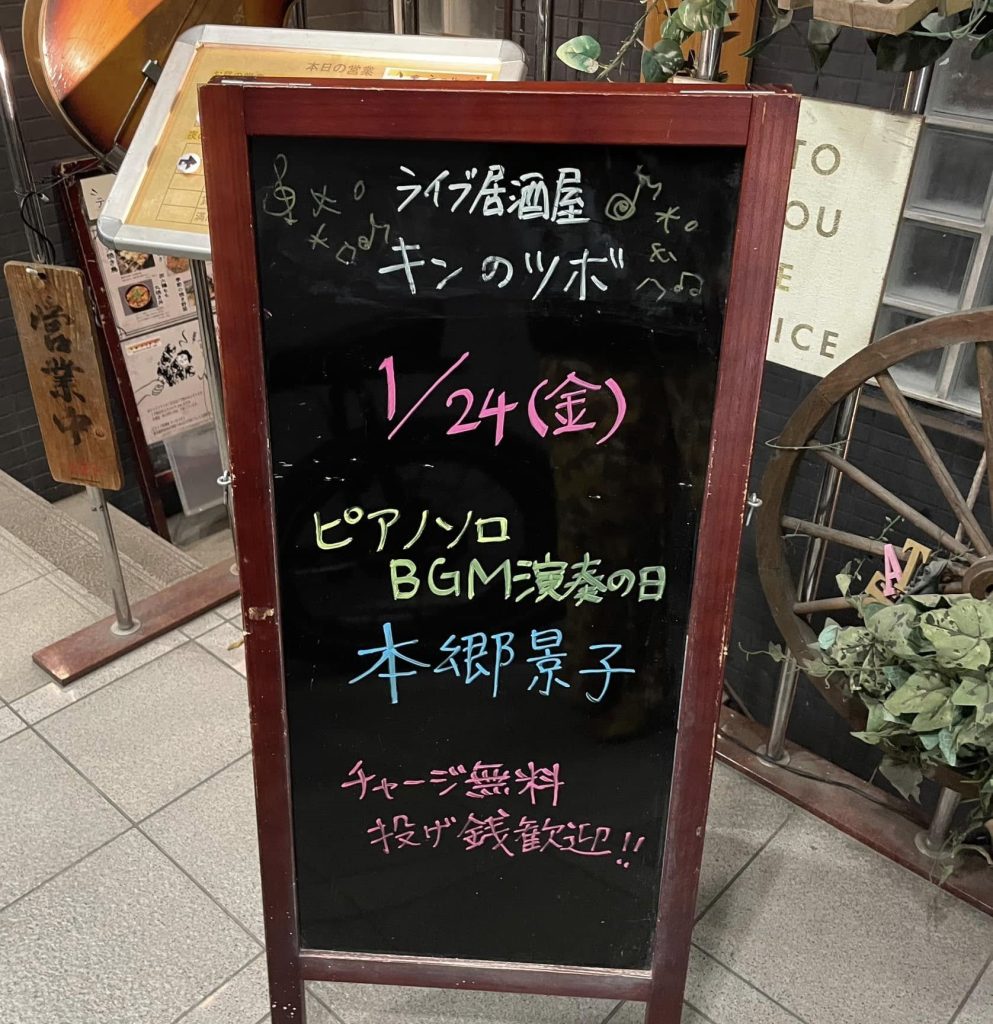 本日の営業
ライブ居酒屋
キンのツボ
1/24(金)
ピアノソロ
BGM演奏の日
本郷景子
チャージ無料
投げ銭歓迎!!
営業中
TO
OU
E
ICE
A
T